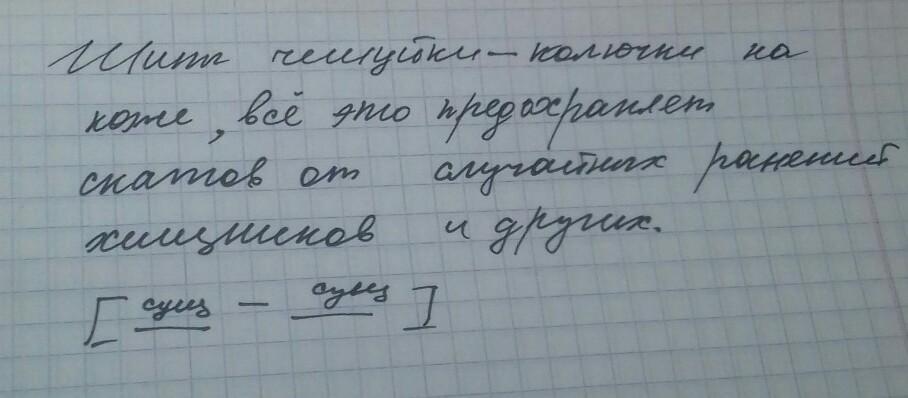 Шипы чешуйки - колючки на
коже, всё это предохраняет
скатов от случайных ранений
хищников и других.
[ сущ - сущ ]